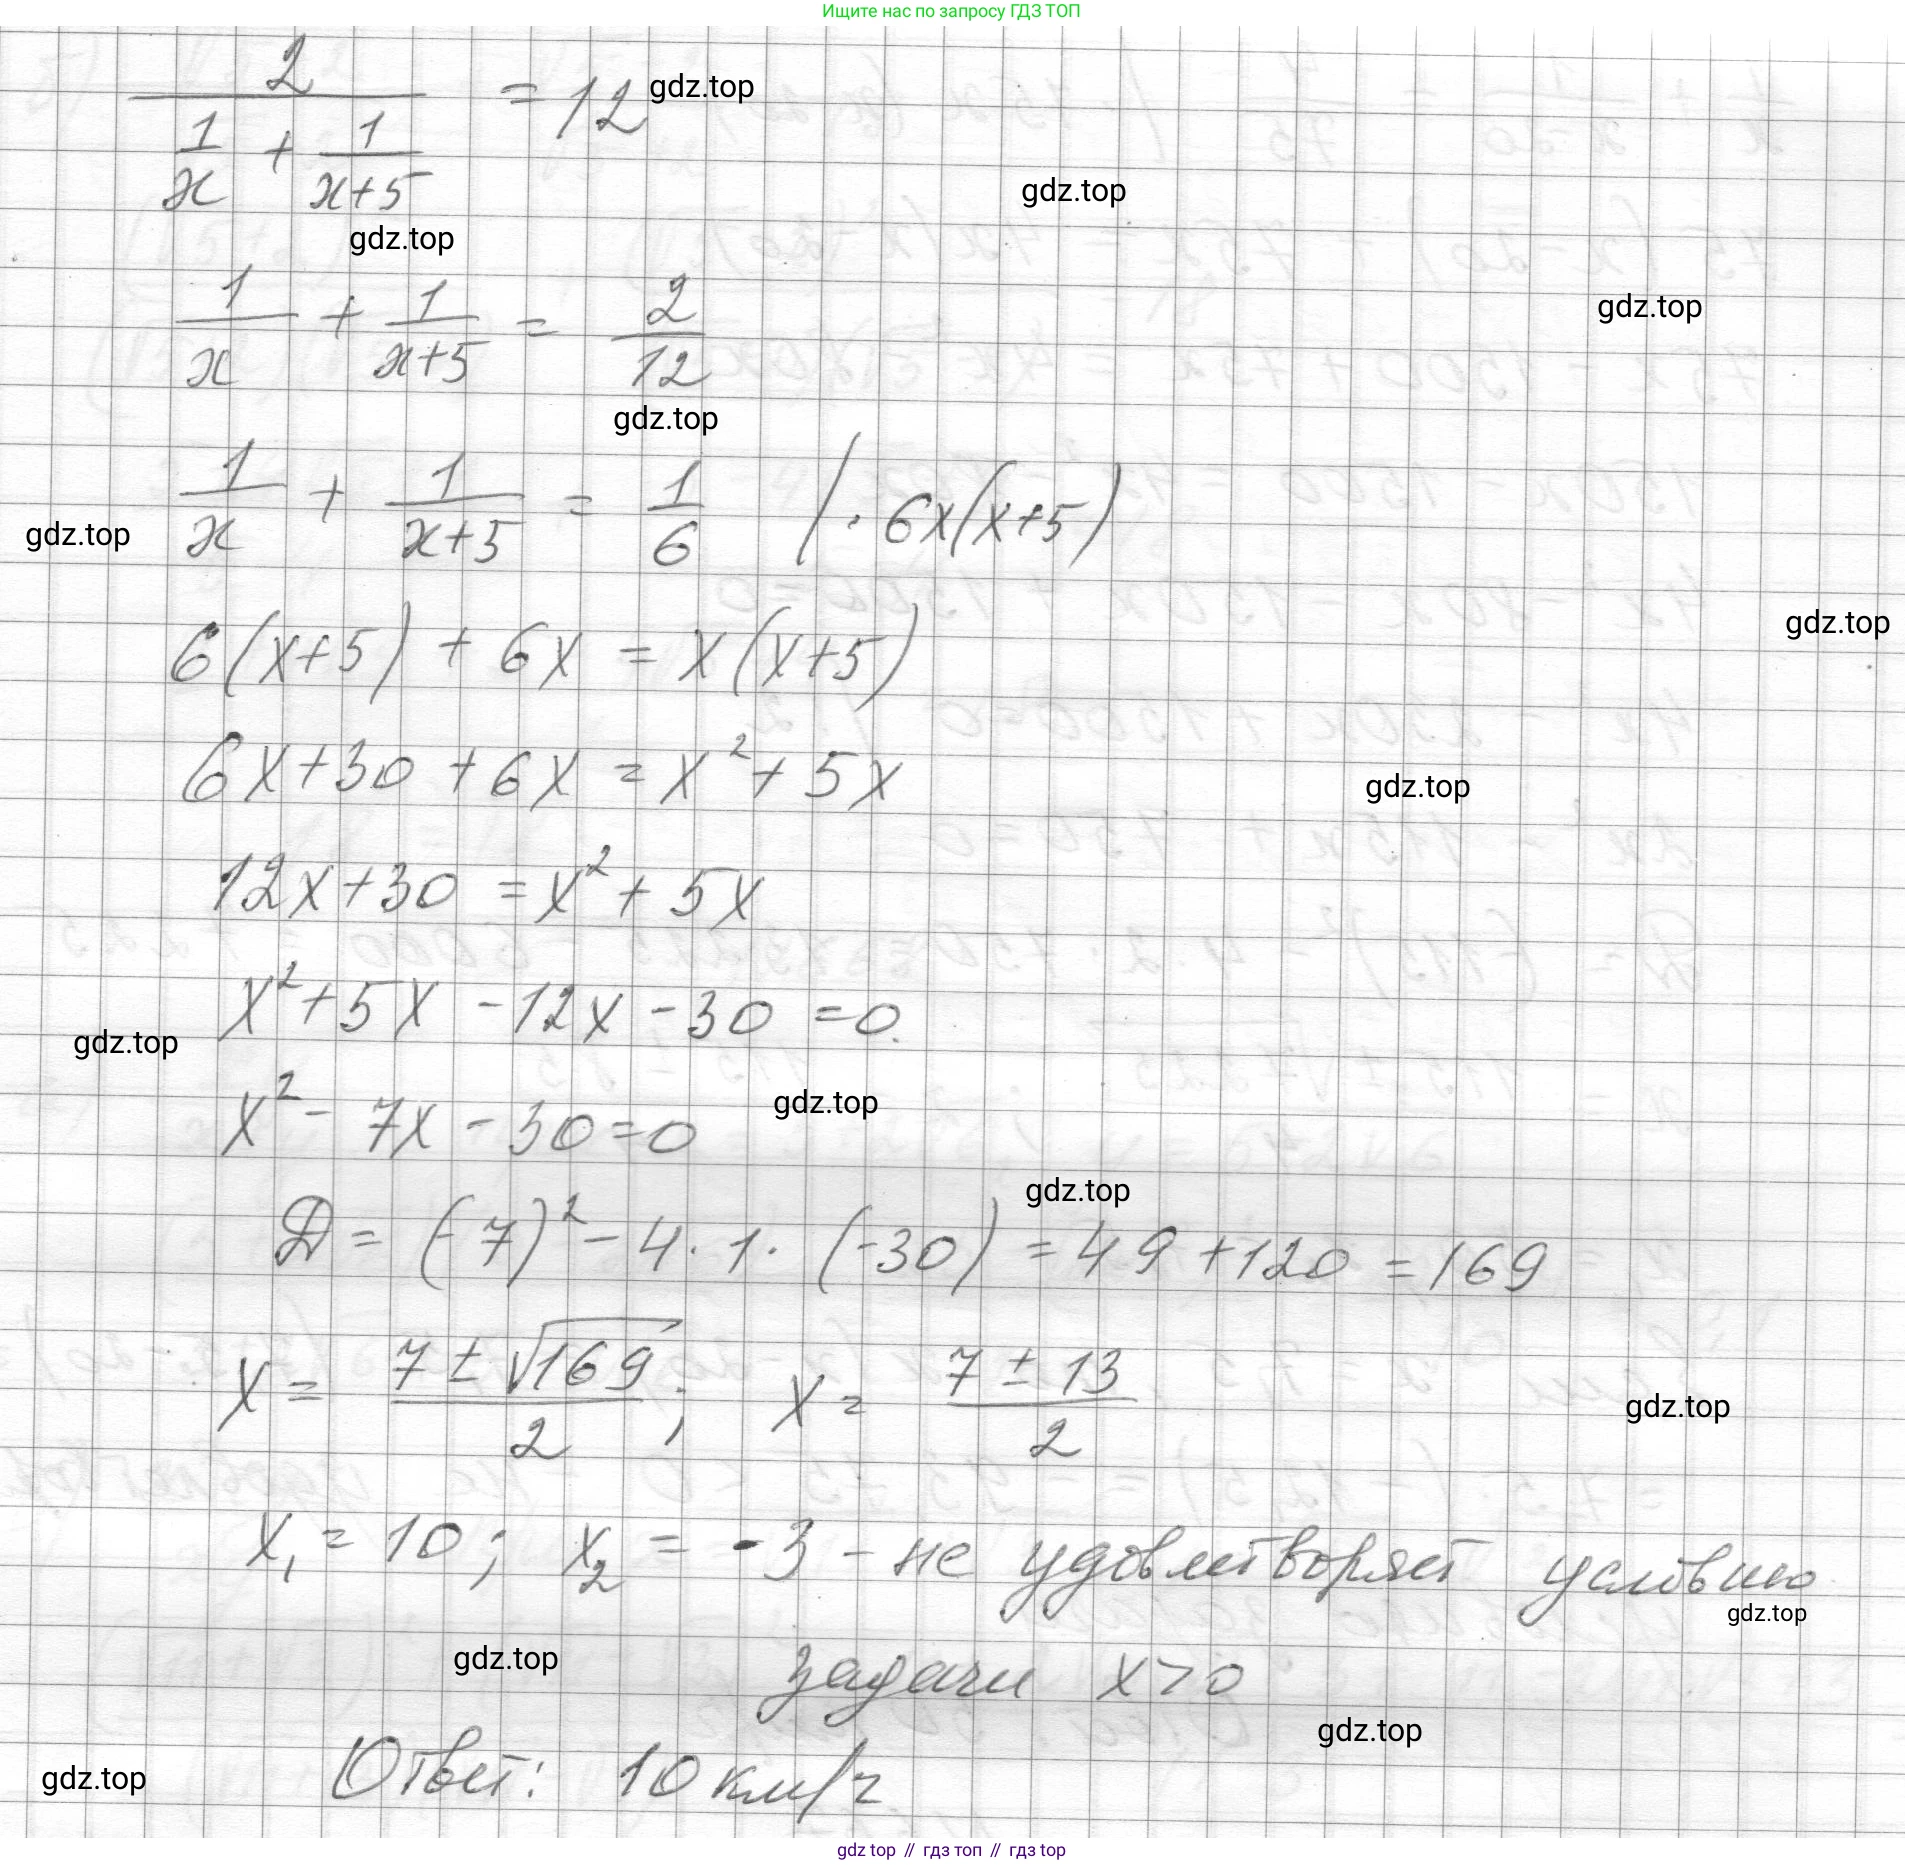 Ищите нас по запросу ГДЗ ТОП
2/(1/x + 1/(x+5)) = 12
gdz.top
gdz.top
gdz.top
1/x + 1/(x+5) = 2/12
gdz.top
gdz.top
1/x + 1/(x+5) = 1/6 | · 6x(x+5)
gdz.top
6(x+5) + 6x = x(x+5)
gdz.top
6x+30 + 6x = x² + 5x
gdz.top
12x+30 = x² + 5x
x² + 5x - 12x - 30 = 0.
gdz.top
x² - 7x - 30 = 0
gdz.top
gdz.top
D = (-7)² - 4 · 1 · (-30) = 49 + 120 = 169
x = (7 ± √169)/2; x = (7 ± 13)/2
gdz.top
x₁ = 10; x₂ = -3 - не удовлетворяет условию
gdz.top
задачи x > 0
gdz.top
gdz.top
Ответ: 10 км/ч
gdz.top
gdz top // гдз топ // гдз top